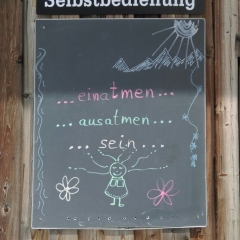 Selbstbedienung
...einatmen...
...ausatmen...
...sein...